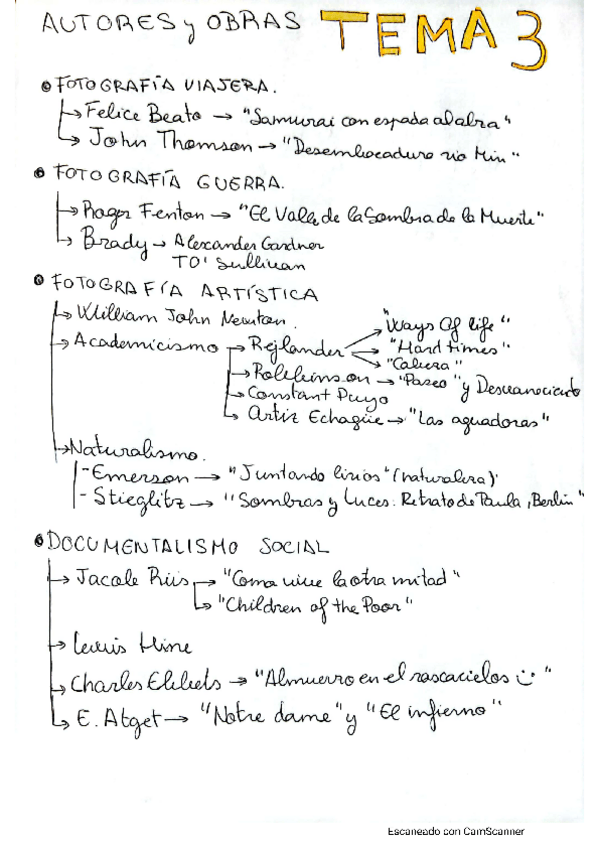 AUTORES y OBRAS TEMA 3
FOTOGRAFÍA VIAJERA.
Felice Beato → "Samurai con espada al abra"
John Thomson → "Desembocadura rio Min"
FOTOGRAFÍA GUERRA.
Roger Fenton → "El Valle de la Sombra de la Muerte"
Brady → Alexander Gardner
TO'Sullivan
FOTOGRAFÍA ARTÍSTICA
William John Newton.
Academicismo → Rejlander → "Ways Of life"
"Hard times"
"Cabeza"
Robinson → "Paseo" y Desvaneciendo
Constant Puyo
Ortiz Echagüe → "Las aguadoras"
Naturalismo.
- Emerson → "Juntando lirios" (naturaleza)
- Stieglitz → "Sombras y Luces. Retrato de Paula, Berlin"
DOCUMENTALISMO SOCIAL
Jacob Riis → "Como vive la otra mitad"
"Children of the Poor"
Lewis Hine
Charles Ebbets → "Almuerzo en el rascacielos"
E. Atget → "Notre dame" y "El infierno"
Escaneado con CamScanner